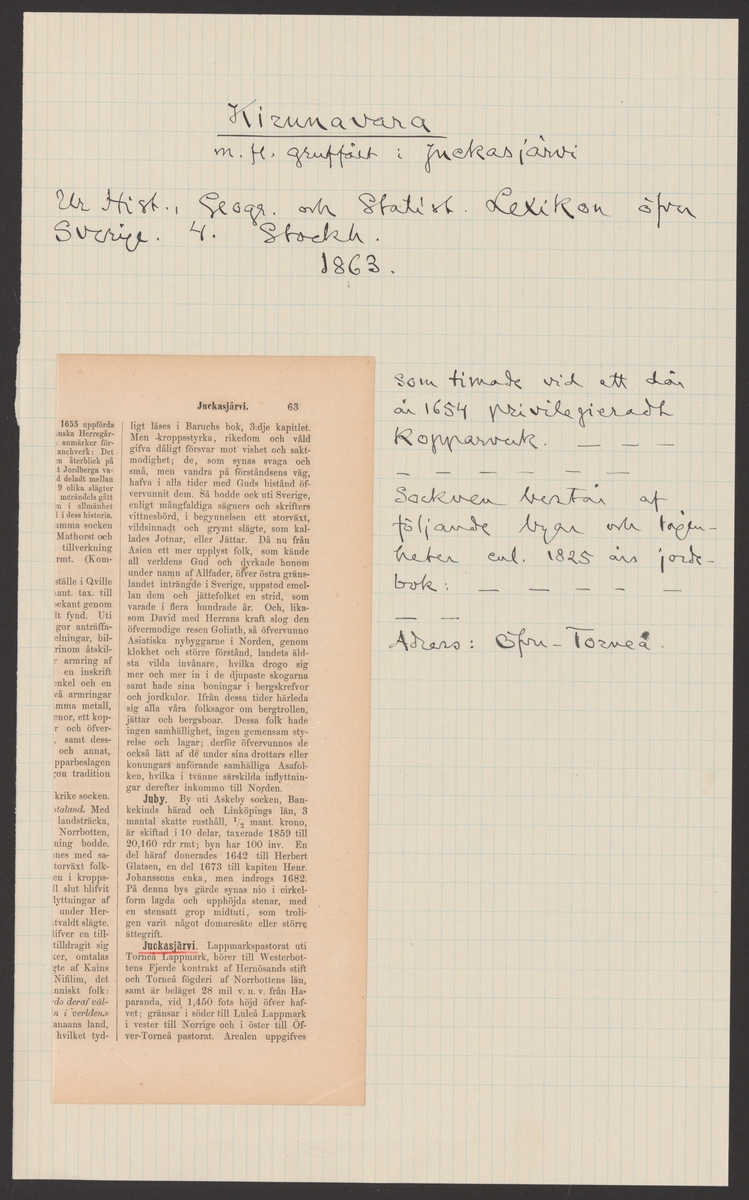 Kirunavara
m. fl. gruffält i Juckasjärvi
Ur Hist., Geogr. och Statist. Lexikon öfver
Sverige. 4. Stockh.
1863.
Juckasjärvi. 63
1655 uppförda
inska Herregår-
anmärker för-
anchverk: Det
n återblick på
t Jordberga va-
d deladt mellan
9 olika slägter
merändels gått
m i allmänhet
l i dess historia.
amma socken
Mathorst och
tillverkning
rmt. (Kom-
ställe i Qville
ant. tax. till
ekant genom
lt fynd. Uti
gor anträffa-
elningar, bil-
rinom åtskil-
r armring af
en inskrift
enkel och en
vå armringar
mma metall,
enor, ett kop-
r och öfver-
, samt dess-
och annat,
pparbeslagen
on tradition
krike socken.
otaland. Med
landsträcka,
Norrbotten,
ning bodde.
nes med sa-
torväxt folk-
en i kropps-
ll slut blifvit
lyttningar af
under Her-
tvaldt slägte.
lifver en till-
tilldragit sig
ker, omtalas
gte af Kains
Nifilim, det
nniskt folk:
do deraf väl-
n i verlden.»
anaans land,
hvilket tyd-
ligt läses i Baruchs bok, 3:dje kapitlet.
Men »kroppsstyrka, rikedom och våld
gifva dåligt försvar mot vishet och sakt-
modighet; de, som synas svaga och
små, men vandra på förståndsens väg,
hafva i alla tider med Guds bistånd öf-
vervunnit dem. Så bodde ock uti Sverige,
enligt mångfaldiga sägners och skrifters
vittnesbörd, i begynnelsen ett storväxt,
vildsinnadt och grymt slägte, som kal-
lades Jotnar, eller Jättar. Då nu från
Asien ett mer upplyst folk, som kände
all verldens Gud och dyrkade honom
under namn af Allfader, öfver östra gräns-
landet inträngde i Sverige, uppstod emel-
lan dem och jättefolket en strid, som
varade i flera hundrade år. Och, lika-
som David med Herrans kraft slog den
öfvermodige resen Goliath, så öfvervunno
Asiatiska nybyggarne i Norden, genom
klokhet och större förstånd, landets äld-
sta vilda invånare, hvilka drogo sig
mer och mer in i de djupaste skogarna
samt hade sina boningar i bergskrefvor
och jordkulor. Ifrån dessa tider härleda
sig alla våra folksagor om bergtrollen,
jättar och bergsboar. Dessa folk hade
ingen samhällighet, ingen gemensam sty-
relse och lagar; derför öfvervunnos de
också lätt af de under sina drottars eller
konungars anförande samhälliga Asafol-
ken, hvilka i tvänne särskilda inflyttnin-
gar derefter inkommo till Norden.
Juby. By uti Askeby socken, Ban-
kekinds härad och Linköpings län, 3
mantal skatte rusthåll, 1/2 mant. krono,
är skiftad i 10 delar, taxerade 1859 till
20,160 rdr rmt; byn har 100 inv. En
del häraf donerades 1642 till Herbert
Glatsen, en del 1673 till kapiten Henr.
Johanssons enka, men indrogs 1682.
På denna bys gärde synas nio i cirkel-
form lagda och upphöjda stenar, med
en stensatt grop midtuti, som troli-
gen varit något domaresäte eller större
ättegrift.
Juckasjärvi. Lappmarkspastorat uti
Torneå Lappmark, hörer till Westerbot-
tens Fjerde kontrakt af Hernösands stift
och Torneå fögderi af Norrbottens län,
samt är beläget 28 mil v. n. v. från Ha-
paranda, vid 1,450 fots höjd öfver haf-
vet; gränsar i söder till Luleå Lappmark
i vester till Norrige och i öster till Öf-
ver-Torneå pastorat. Arealen uppgifves
som timade vid ett där
år 1654 privilegieradt
Kopparverk. — — —
— — — — — —
Socknen består af
följande byar och lägen-
heter enl. 1825 års jorde-
bok: — — — — —
— —
Adress: Öfver-Torneå.